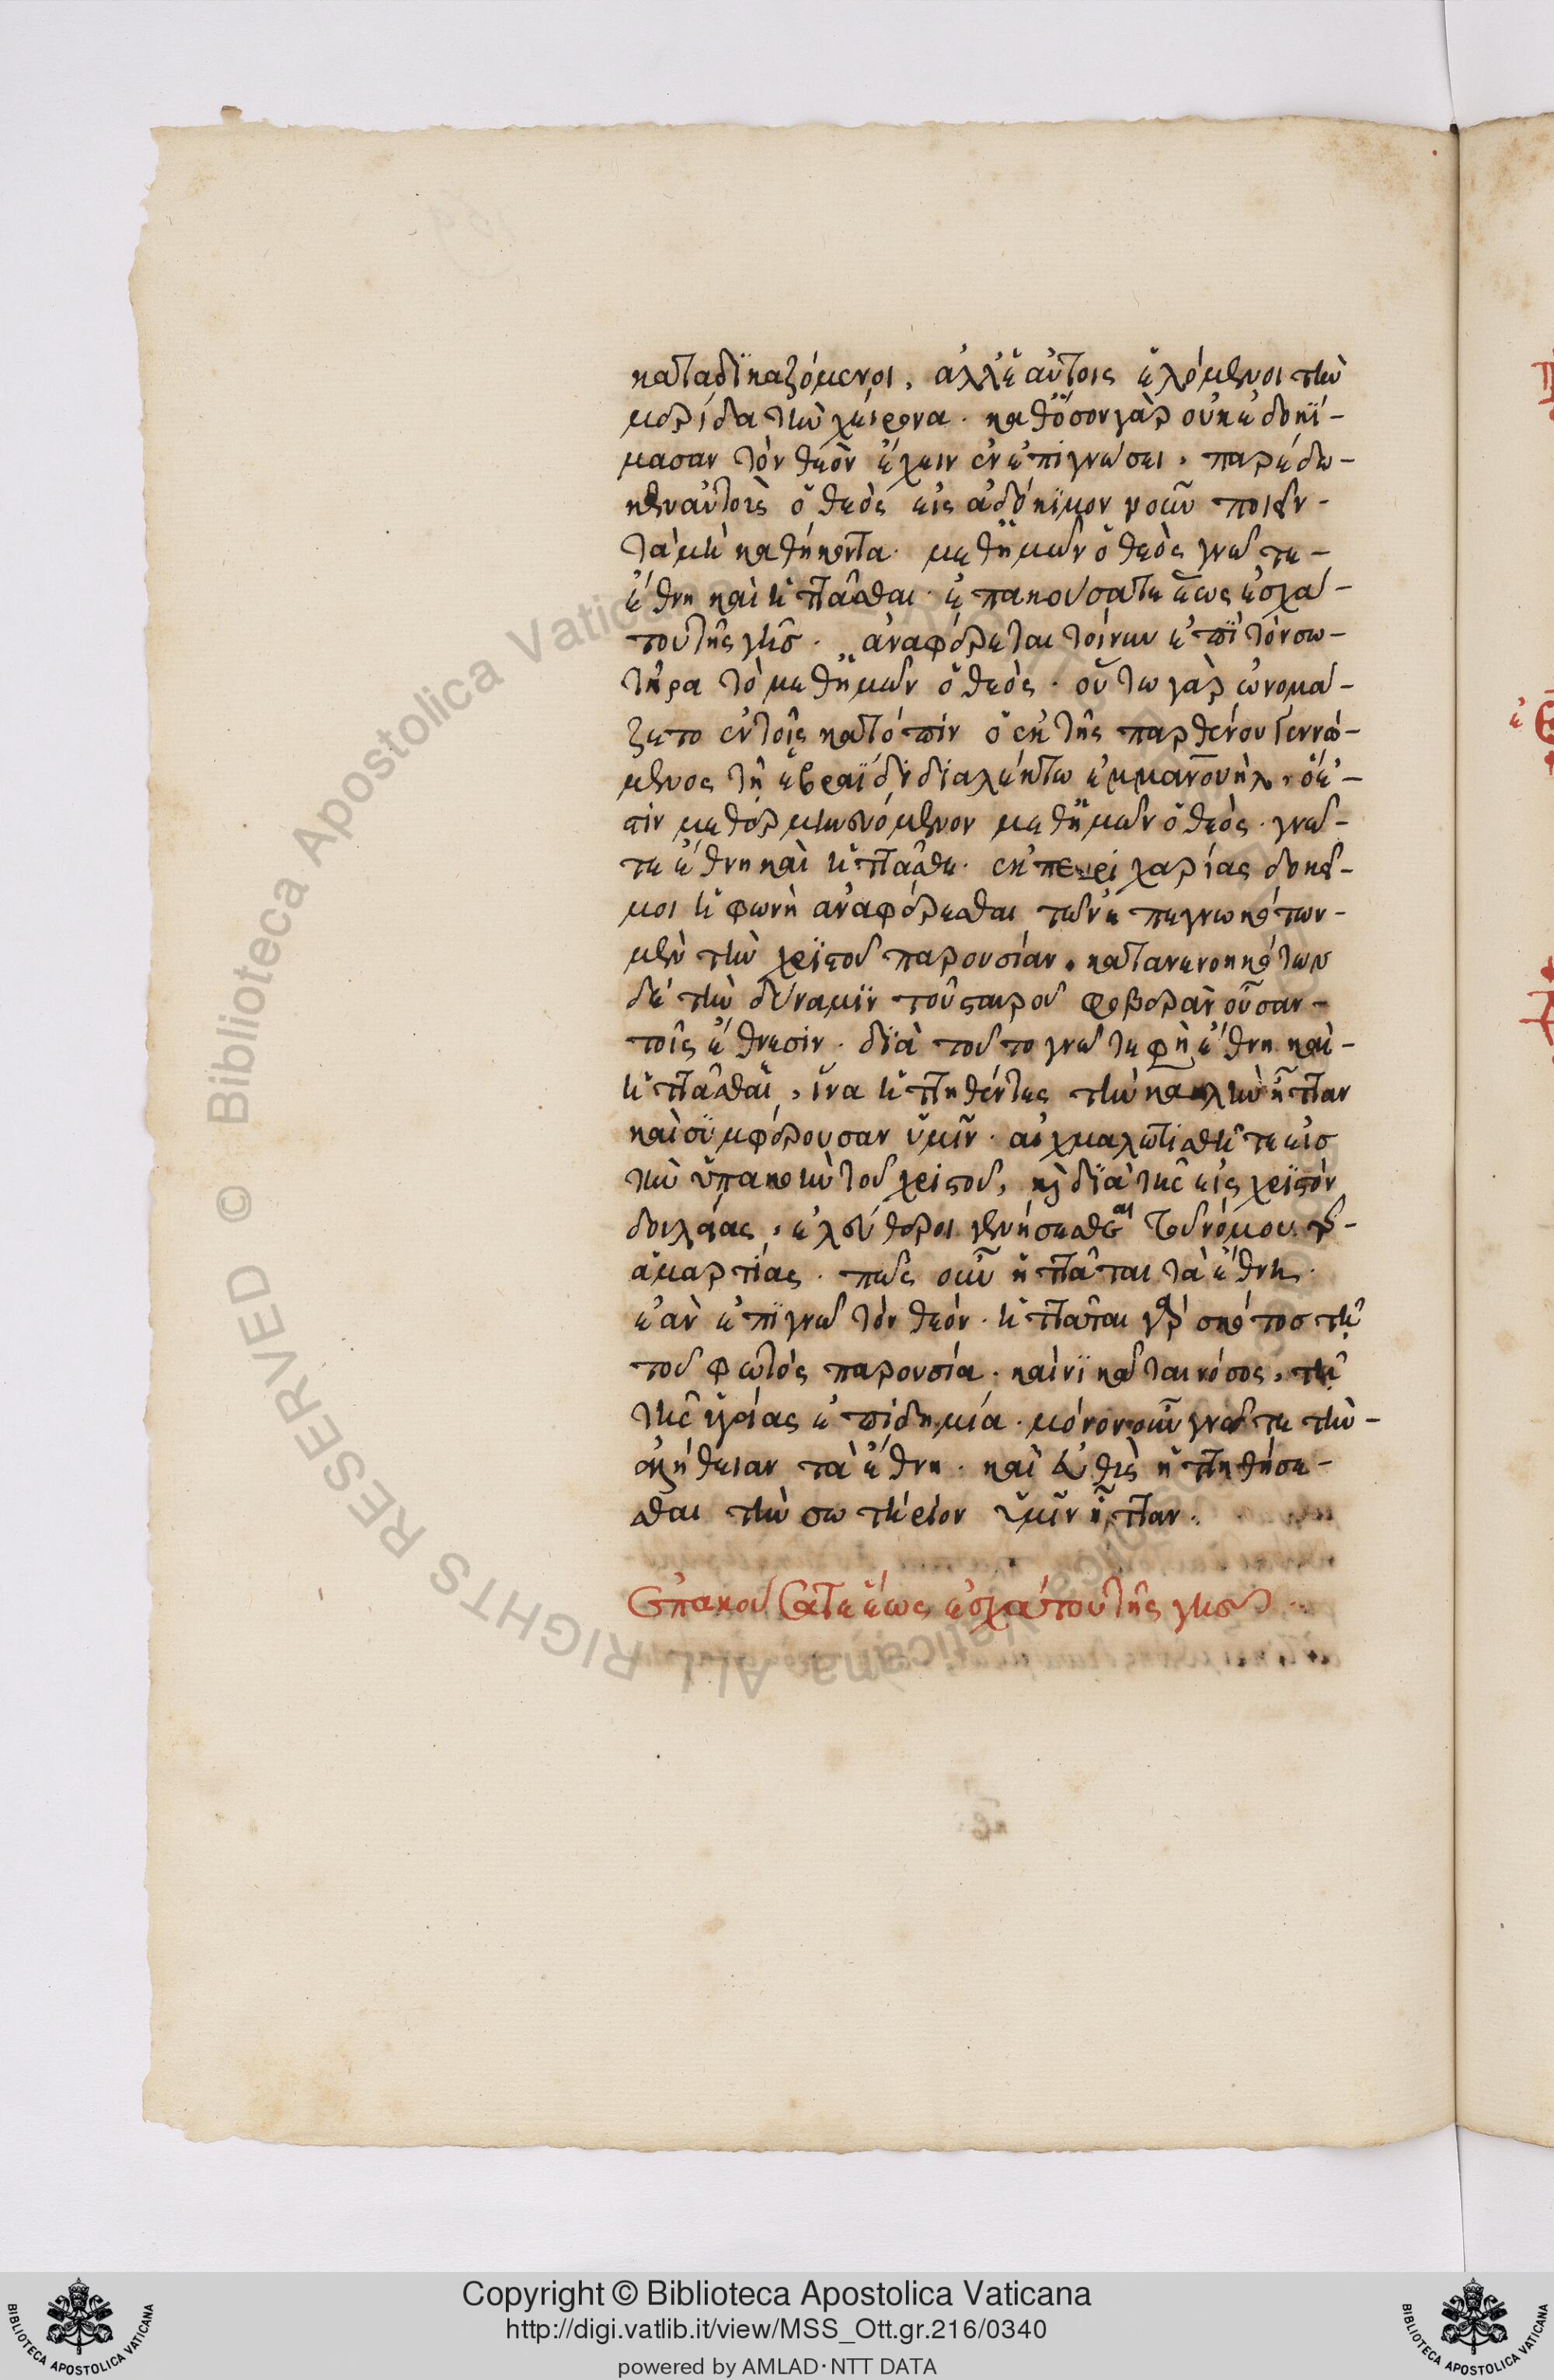 καταδϊκαζόμενοι, ἀλλ' ἑαυτοῖς ἑλόμενοι τὴν
μερίδα τὴν χείρονα· καθ' ὅσον γὰρ οὐκ ἐδοκΐ-
μασαν τὸν θεὸν ἔχειν ἐν ἐπιγνώσει, παρέδω-
κεν αὐτοὶς ὁ θεὸς εἰς ἀδόκϊμον νοῦν ποιεῖν-
τὰ μὴ καθήκοντα· μεθ' ἡμῶν ὁ θεὸς γνῶτε-
ἔθνη καὶ ἡττᾶσθαι· ἐπακούσατε ἕως ἐσχά-
του τῆς γῆσ· ἀναφέρεται τοίνυν ἐπὶ τὸν σω-
τῆρα τὸ μεθ' ἡμῶν ὁ θεὸς· οὕτω γὰρ ὠνομά-
ζετο ἐν τοῖς κατόπιν ὁ ἐκ τῆς παρθένου γεννώ-
μενος τῇ ἑβραΐδι διαλέκτω ἐμμανουὴλ, ὅ ἐ-
στιν μεθερμηνευόμενον μεθ' ἡμῶν ὁ θεὸς· γνῶ-
τε ἔθνη καὶ ἡττᾶσθε· ἐκ περιχαρίας δοκεῖ-
μοι ἡ φωνὴ ἀναφέρεσθαι τῶν ἐπεγνωκότων-
μὲν τὴν χριστοῦ παρουσίαν, κατανενοηκότων
δέ τὴν δύναμϊν τοῦ σταυροῦ φοβερὰν οὖσαν-
τοῖς ἔθνεσιν· δϊὰ τοῦτο γνῶτε φὴ ἔθνη καὶ-
ἡττᾶσθαϊ, ἵνα ἡττηθέντες τὴν καλὴν ἧτταν
καὶ σϋμφέρουσαν ὑμῖν· αἰχμαλωτισθῆτε εἰσ
τὴν ὑπακοὴν τοῦ χριστοῦ, καὶ δϊὰ τῆς εἰς χριστόν
δουλείας, ἐλεύθεροι γενήσεσθαι τοῦ νόμου τῆς-
ἁμαρτίας· πῶς οὖν ἡττᾶται τὰ ἔθνη·
ἐὰν ἐπϊγνῶ τὸν θεόν· ἡττᾶται γὰρ σκότοσ τῇ
τοῦ φωτὸς παρουσία· καὶ νϊκᾶται νόσος, τῇ
τῆς ὑγείας ἐπιδημία· μόνον οὖν γνῶτε τὴν-
ἀλήθειαν τὰ ἔθνη· καὶ εὐθὶς ἡττηθήσε-
σθαι τὴν σωτήριον ὑμῖν ἧτταν·
Ἐπακούσατε ἕως ἐσχάτου τῆς γῆσ
Copyright © Biblioteca Apostolica Vaticana
http://digi.vatlib.it/view/MSS_Ott.gr.216/0340
powered by AMLAD·NTT DATA